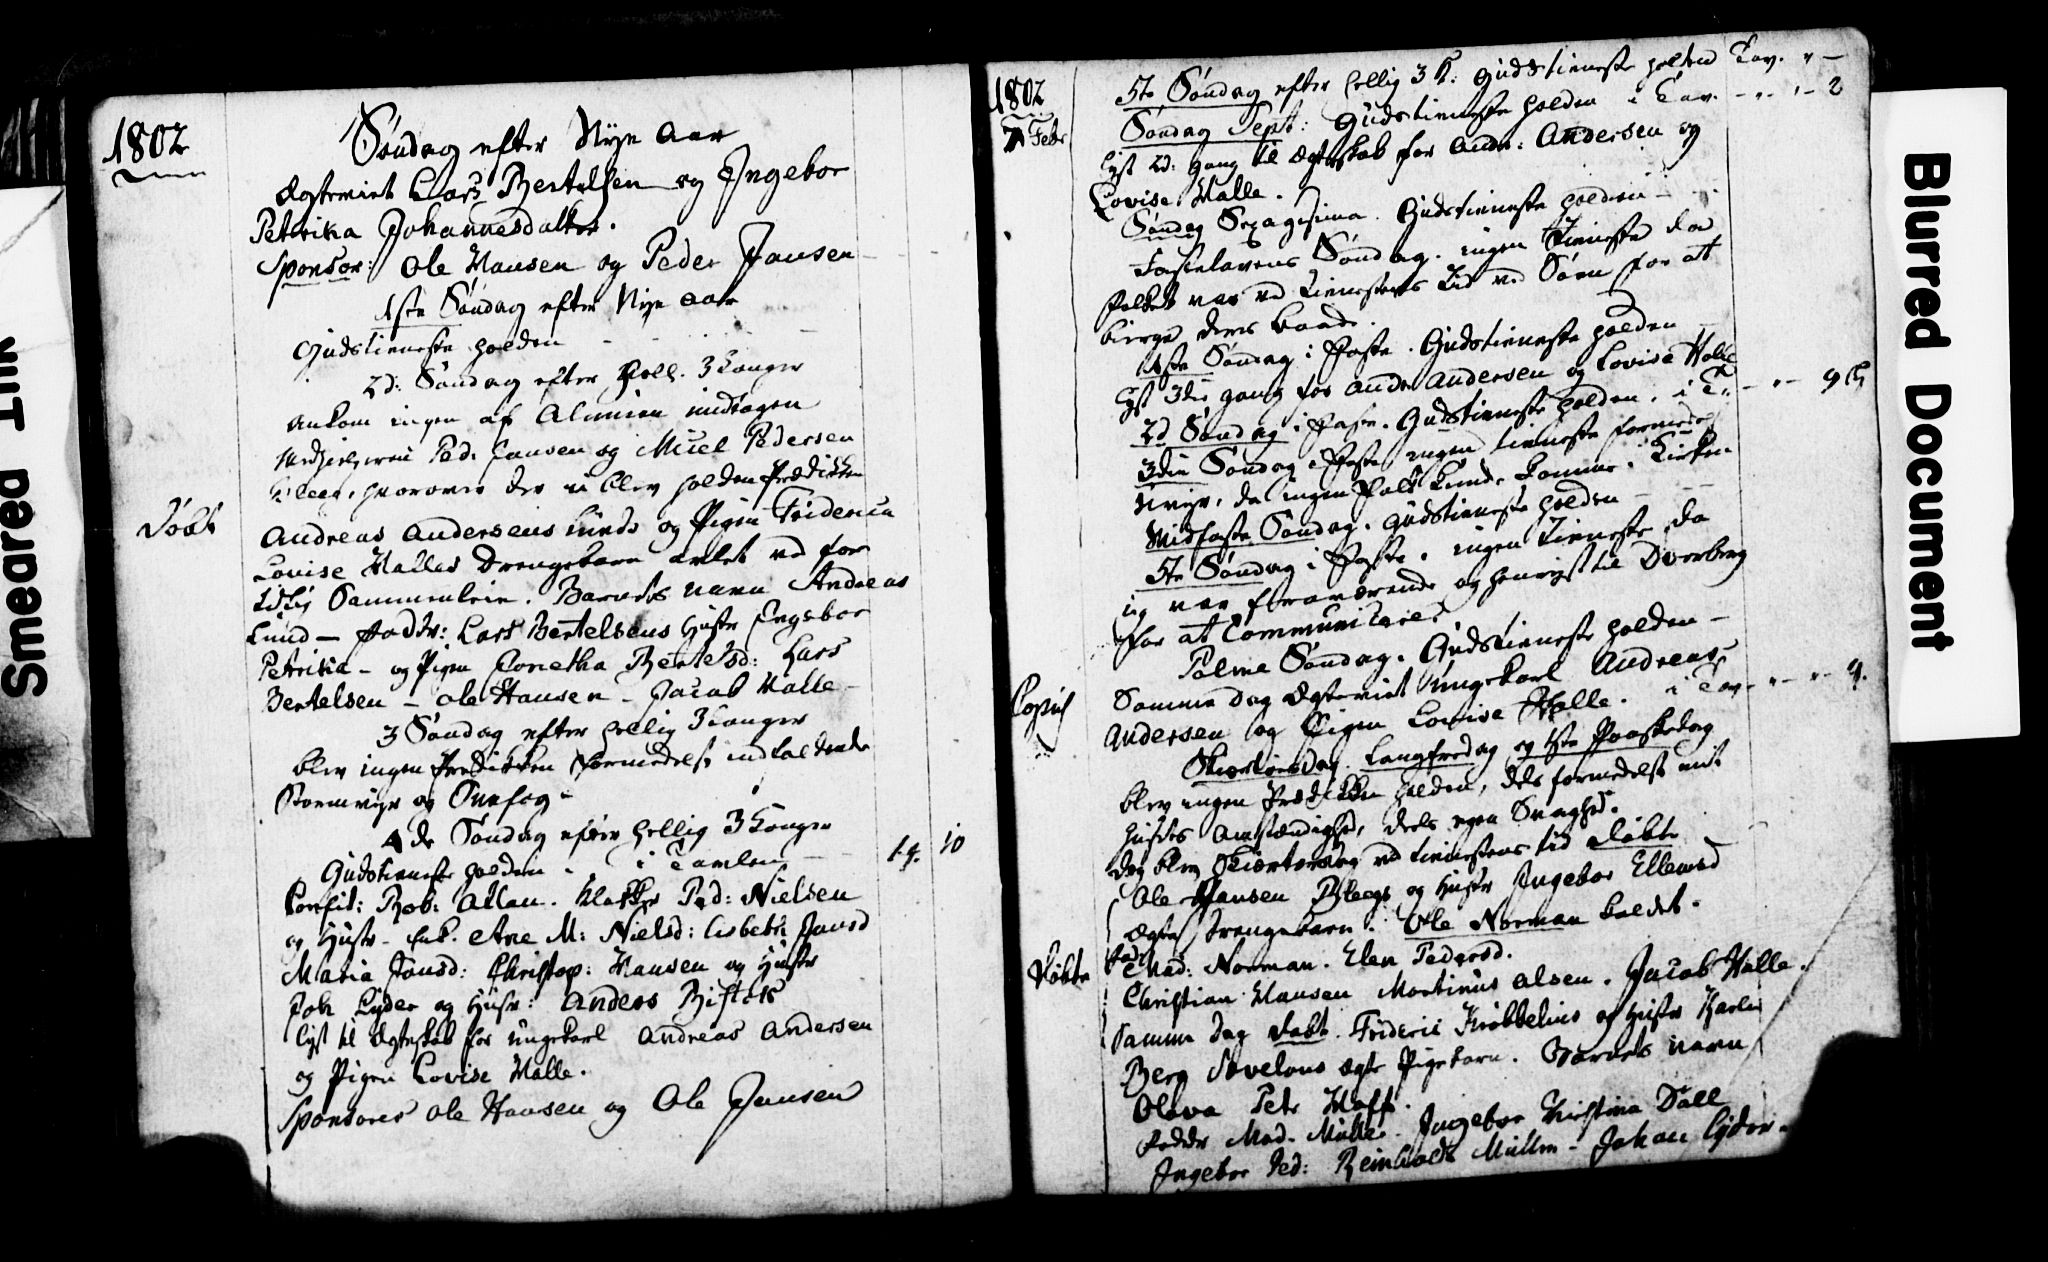 Smeared Ink
1802
Søndag efter Nye Aar
Ægteviet Lars Bertelsen og Ingebor
Petrika Johannesdatter.
Sponsor: Ole Hansen og Peder Jansen
1ste Søndag efter Nye Aar
Gudstieneste holden
2d: Søndag efter Hell. 3 Konger
Ankom ingen af Almuen undtagen
Ped. Jansen og Miel Pedersen
hvorover der ei blev holden Prædikken
Døbt
Andreas Andersens Lunds og Pigen Friderica
Lovise Halles Drengebarn avlet ved for
tidlig Sammenleie. Barnets navn Andreas
Lund - Fadde: Lars Bertelsens Hustr Engebor
Petrika - og Pigen Conetha Bertelsd: Lars
Bertelsen - Ole Hansen - Jacob Halle -
3 Søndag efter hellig 3 Konger
blev ingen Prædikken formedelst indfaldende
Stormveir og Snefog -
4de Søndag efter hellig 3 Konger
Gudstieneste holden - i Tavlen - 14. 10
Confit: Rob: Allan. Klokker Ped: Nielsen
og Hustr - Enk. Ane M: Nielsd: Lisbeth Jansd
Maria Jonsd: Christop: Hansen og Hustr
Joh Lyder og Hustr: Anders
Lyst til Ægteskab for ungekarl Andreas Andersen
og Pigen Lovise Halle.
Sponsores Ole Hansen og Ole Jansen
1802
5te Søndag efter Hellig 3 K: Gudstieneste holden Tav. " -
7 Febr
Søndag Sept: Gudstieneste holden i Tav. - " - 2
Lyst 2d: gang til Ægteskab for Andr: Andersen og
Lovise Halle.
Søndag Sexagesima. Gudstieneste holden -
Fastelavens Søndag. ingen Tieneste da
folket var ved Tienestens tid ved Søen for at
bierge deres baade.
1ste Søndag i Faste. Gudstieneste holden
Lyst 3die gang for Andr Andersen og Lovise Halle
2d Søndag i Faste. Gudstieneste holden. i T. - " -
3die Søndag i Faste ingen tieneste formedelst
Uveir, da ingen Folk kunde komme i Kirken
Midfaste Søndag. Gudstieneste holden -
5te Søndag i Faste. ingen Tieneste da
ieg var fraværende og henreist til Dverberg
for at Communicere.
Palme Søndag. Gudstieneste holden -
Copul
Samme dag Ægteviet Ungekarl Andreas
Andersen og Pigen Lovise Halle. i Tav - " - " - 4.
Skiertorsdag. Langfredag og 1ste Paaskedag
blev ingen Prædikken holden, dels formedelst mit
Huses Omstændighed, deels egen Svaghed.
Dog blev Skiertorsdag ved tienestens tid døbt
Ole Hansen Bleegs og Hustr Ingebor Ellewsd
ægte Drengebarn. Ole Norman kaldet.
Døbte
Fad: Mad: Norman. Elen Pedersd.
Christian Hansen Mortinus Olsen. Jacob Halle.
Samme dag døbt Frideric Krøbbelius og Hustr Karen
Berg ægte Pigebarn. Barnets navn
Olava Petr
Fadde Mad. Müller - Ingebor Kirstina Dall
Ingebor Ped: Reinholdt Müller - Johan Lyder -
Blurred Document